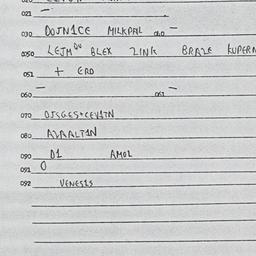 021 —
030 DOJN1CE MILKPAL 040 —
050 LEJM DU BLEX ZINK BRAZE KUPERN
051 + ERD
060 — 061 —
070
080 AVAALTIN
090 D1 AMOL
091 O
092 VENES1S